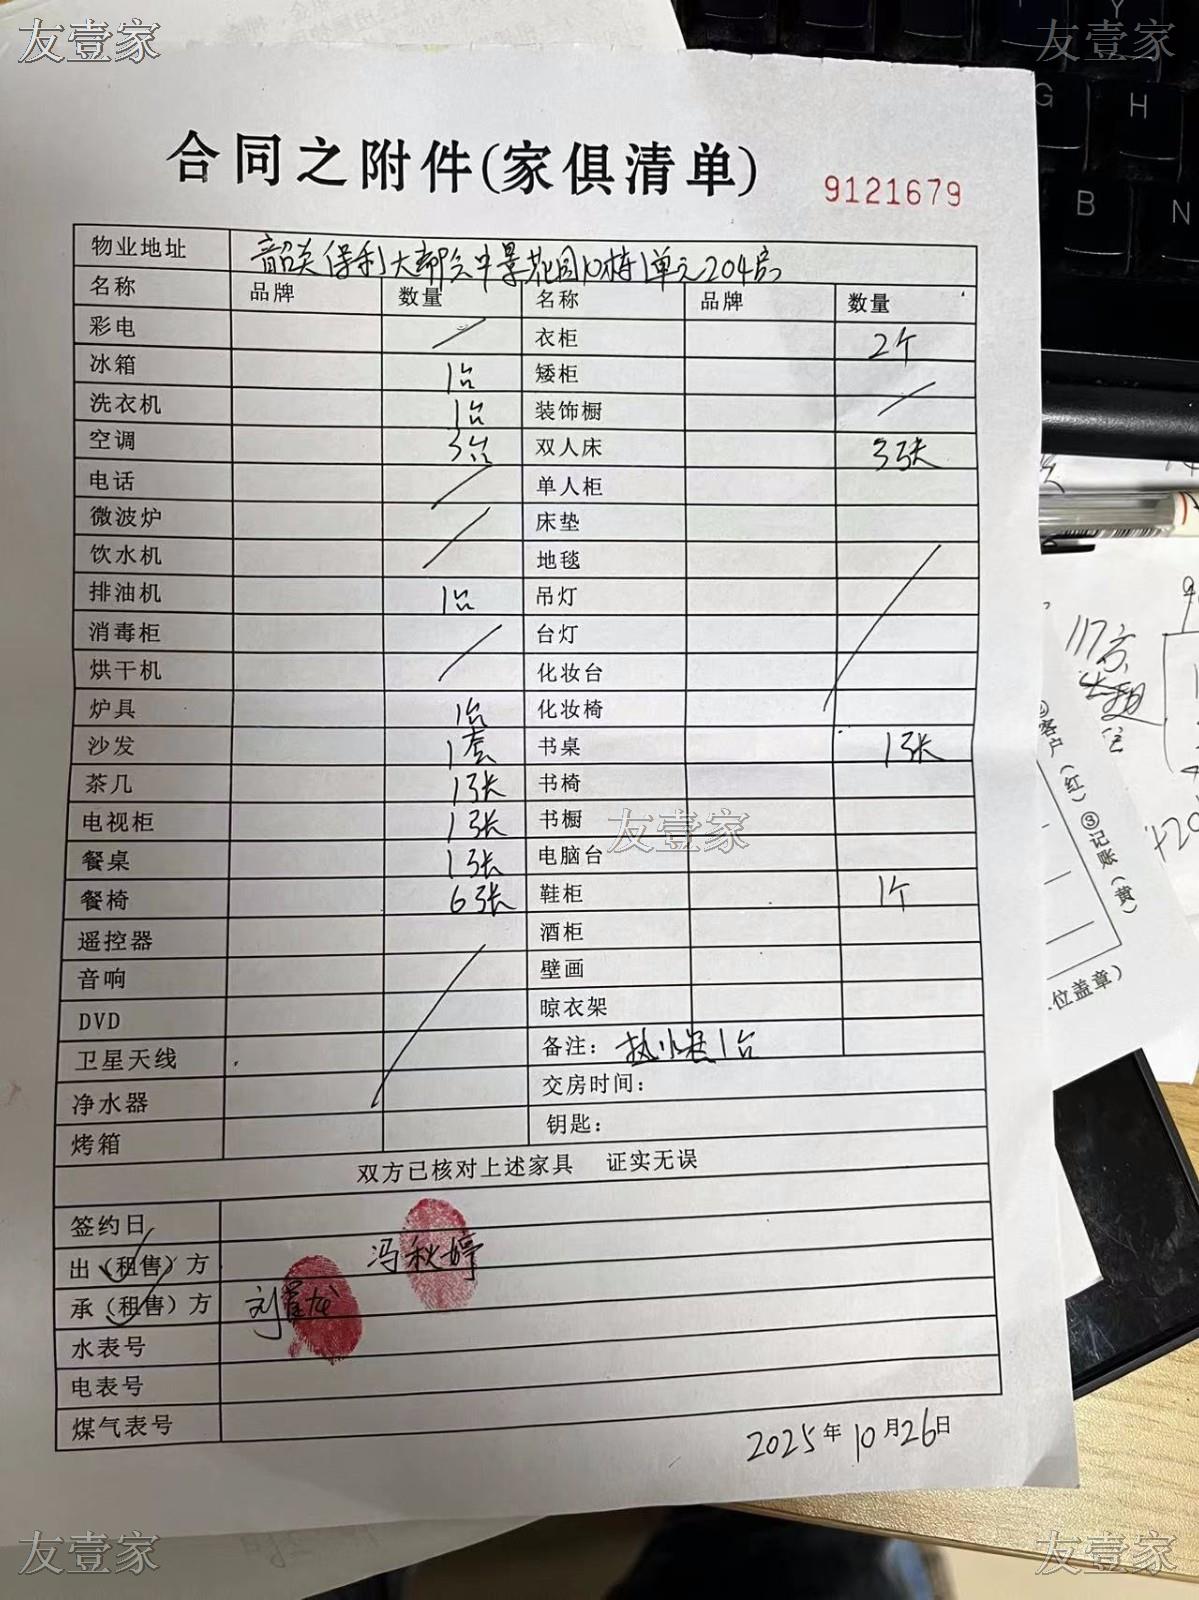 友壹家 友壹家
G H
B N
合同之附件(家俱清单) 9121679
物业地址 韶关保利大都会中景花园10栋1单元204房
名称 品牌 数量 名称 品牌 数量
彩电 衣柜 2个
冰箱 1台 矮柜
洗衣机 1台 装饰橱
空调 3台 双人床 3张
电话 单人柜
微波炉 床垫
饮水机 地毯
排油机 1台 吊灯
消毒柜 台灯
烘干机 化妆台
炉具 1台 化妆椅
沙发 1套 书桌 1张
茶几 1张 书椅
电视柜 1张 书橱
餐桌 1张 电脑台
餐椅 6张 鞋柜 1个
遥控器 酒柜
音响 壁画
DVD 晾衣架
卫星天线 备注: 热水器1台
净水器 交房时间:
烤箱 钥匙:
双方已核对上述家具 证实无误
签约日
出(租售)方 冯秋婷
承(租售)方
水表号
电表号
煤气表号
2025年10月26日
友壹家
117方
客户(红)③记账(黄)
位盖章)
友壹家 友壹家